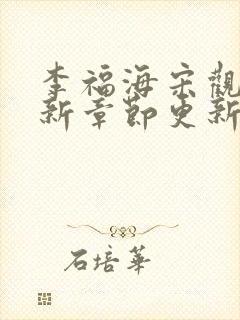 李福海宗觀
新章節更新
石培華